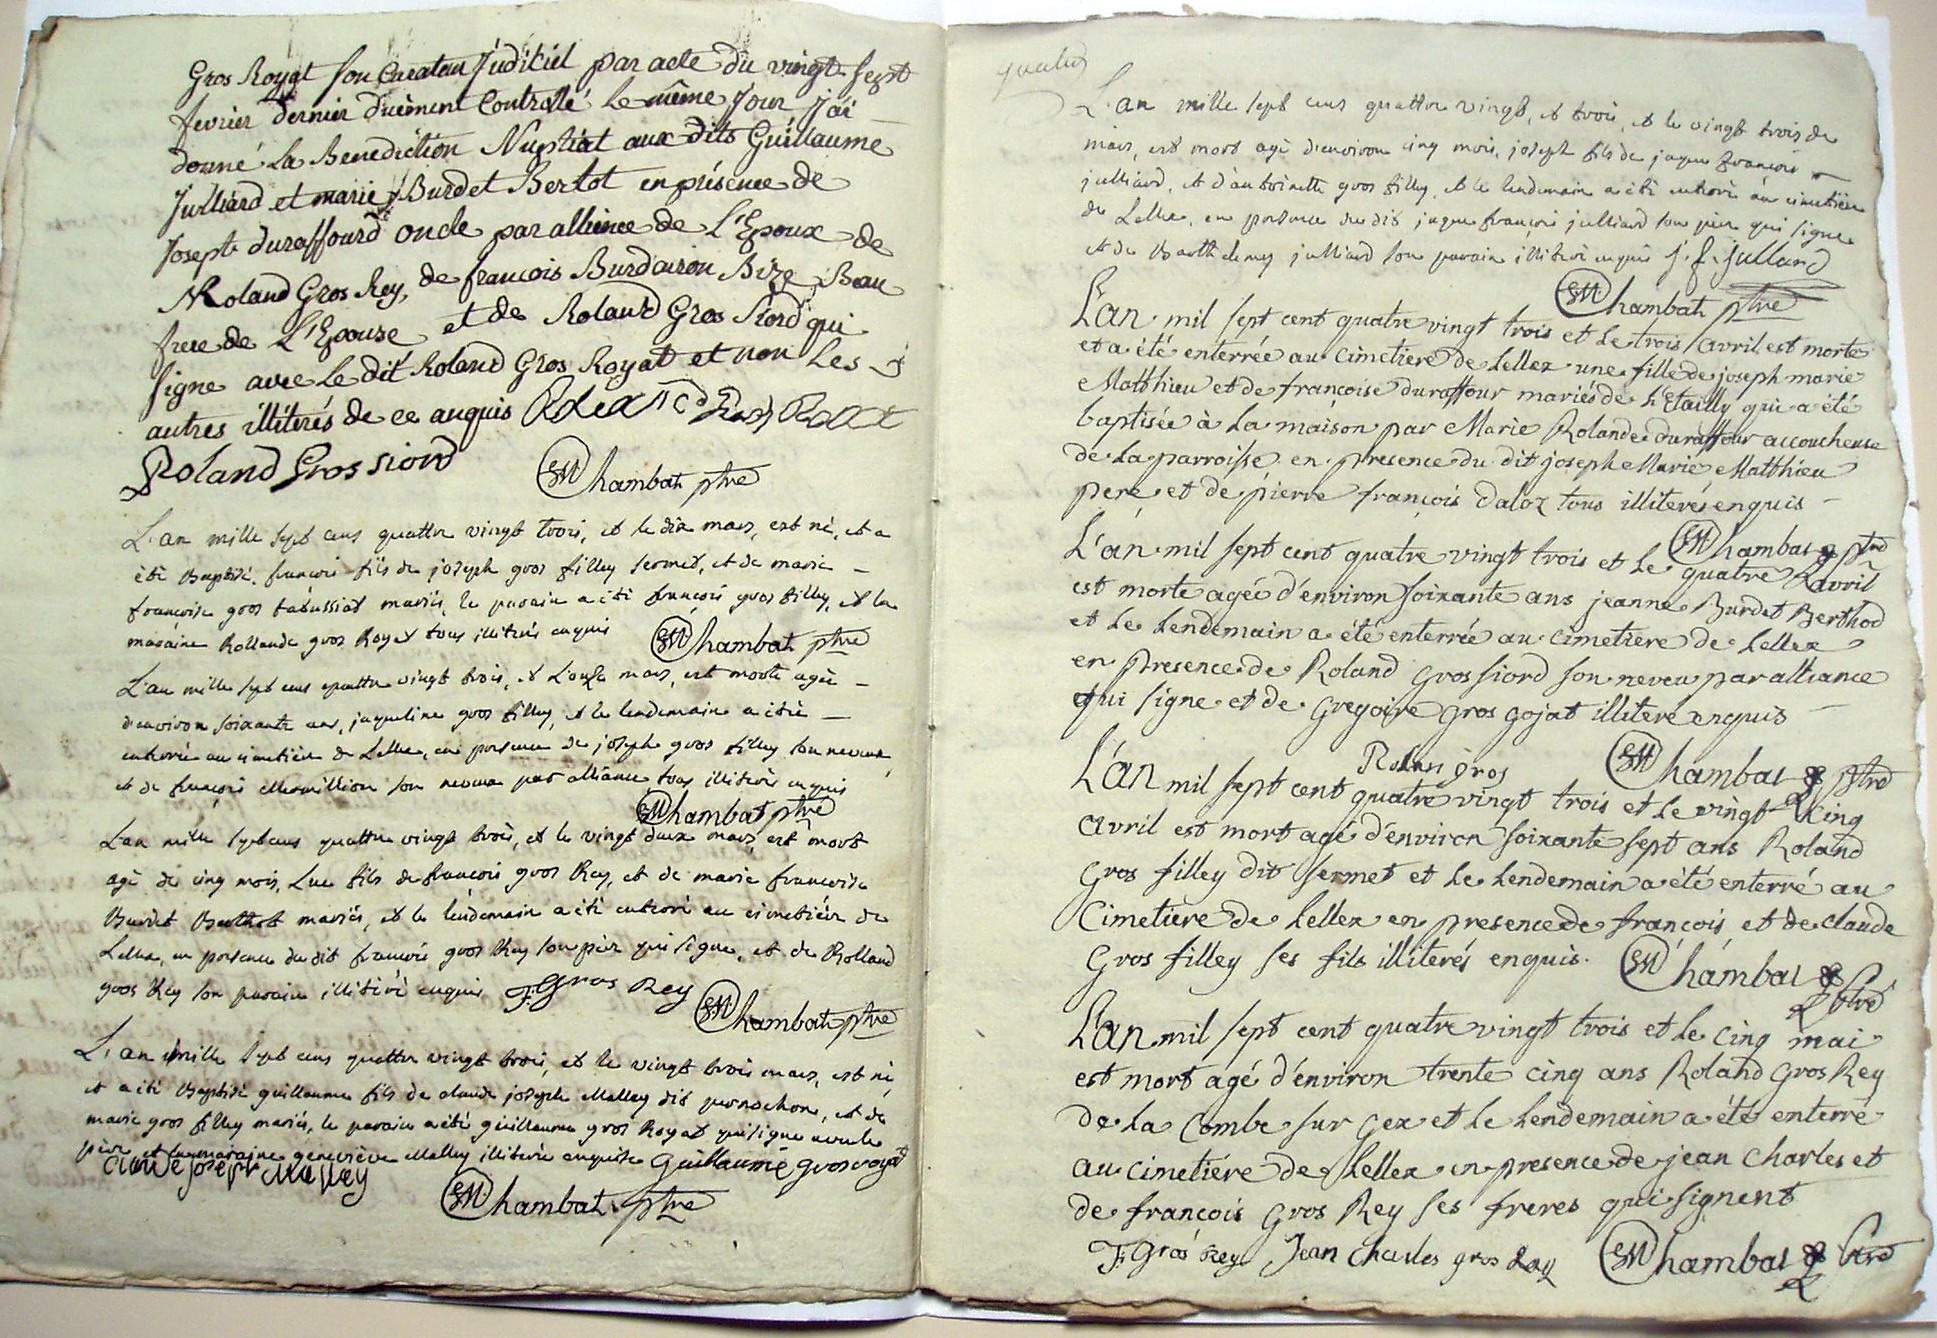 Gros Royat son Curateur Juditiel par acte du vingt sept
fevrier dernier duëment Controllé le même Jour j'ai
donné la Benediction Nuptial aux dits Guillaume
Julliard et marie Burdet Bertot en présence de
Joseph duraffourd oncle par alliance de L'Epoux de
Roland Gros Rey, de francois Burdairon Bize, Beau
frere de L'Epouse et de Roland Gros Siord qui
signe avec Le dit Roland Gros Royat et non Les
autres illiterés de ce anquis
Roland Gros siord
Chambat ptre
L'an mille sept cens quattre vingt trois, et le dix mars, est né, et a
été Baptisé, francois fils de joseph gros filley sermet, et de marie
francoise gros tabussiat mariés, le parain a été francois gros filley, et la
maraine Rollande gros Royat tous illiterés enquis
Chambat ptre
L'an mille sept cens quattre vingt trois, et l'onze mars, est morte agée
d'environ soixante ans, jaqueline gros filley, et le lendemain a étée
enterrée au cimetière de Lellex, en presence de joseph gros filley son neveux,
et de françois Mermillion son neveux par alliance tous illiterés enquis
Chambat ptre
L'an mille sept cens quattre vingt trois, et le vingt deux mars, est mort
agé de cinq mois, Luc fils de francois gros Rey, et de marie francoise
Burdet Berthot mariés, et le lendemain a été enterré au cimetière de
Lellex, en presence du dit francois gros Rey son père qui signe, et de Rolland
gros Rey son parain illiteré enquis F Gros Rey
Chambat ptre
L'an mille sept cens quattre vingt trois, et le vingt trois mars, est né
et a été Baptisé guillaume fils de claude joseph Malley dit pernochon, et de
marie gros filley mariés, le parain a été guillaume gros Royat qui signe avec le
père et la maraine geneviève Malley illiterée enquise Guillaume gros royat
claude joseph Malley
Chambat ptre
L'an mille sept cens quattre vingt, et trois, et le vingt trois de
mars, est mort agé d'environ cinq mois, joseph fils de jaques francois
julliard, et d'antoinette gros filley, et le lendemain a été enterré au cimetière
de Lellex, en presence du dit jaques françois julliard son père qui signe
et de Barthelemy julliard son parain illiteré enquis J. f. Julliard
Chambat ptre
L'an mil sept cent quatre vingt trois et le trois avril est morte
et a été enterrée au cimetiere de Lellex une fille de joseph marie
Matthieu et de françoise duraffour mariés de L'Etailly qui a été
baptisée à la maison par Marie Rolande duraffour accoucheuse
de la parroisse en presence du dit joseph Marie Matthieu
pere et de pierre françois Daloz tous illiterés enquis
Chambat ptre
L'an mil sept cent quatre vingt trois et le quatre avril
est morte agée d'environ soixante ans jeanne Burdet Berthod
et le lendemain a été enterrée au cimetiere de Lellex
en presence de Roland gros siord son neveu par alliance
qui signe et de gregoire gros gojat illiteré enquis
Rolan gros
Chambat ptre
L'an mil sept cent quatre vingt trois et le vingt cinq
avril est mort agé d'environ soixante sept ans Roland
Gros filley dit sermet et le lendemain a été enterré au
Cimetiere de Lellex en presence de françois et de claude
Gros filley ses fils illiterés enquis. Chambat
ptre
L'an mil sept cent quatre vingt trois et le cinq mai
est mort agé d'environ trente cinq ans Roland Gros Rey
de la Combe sur gex et le lendemain a été enterré
au cimetiere de Lellex en presence de jean Charles et
de françois Gros Rey ses freres qui signent
F Gros Rey Jean Charles gros Rey Chambat ptre